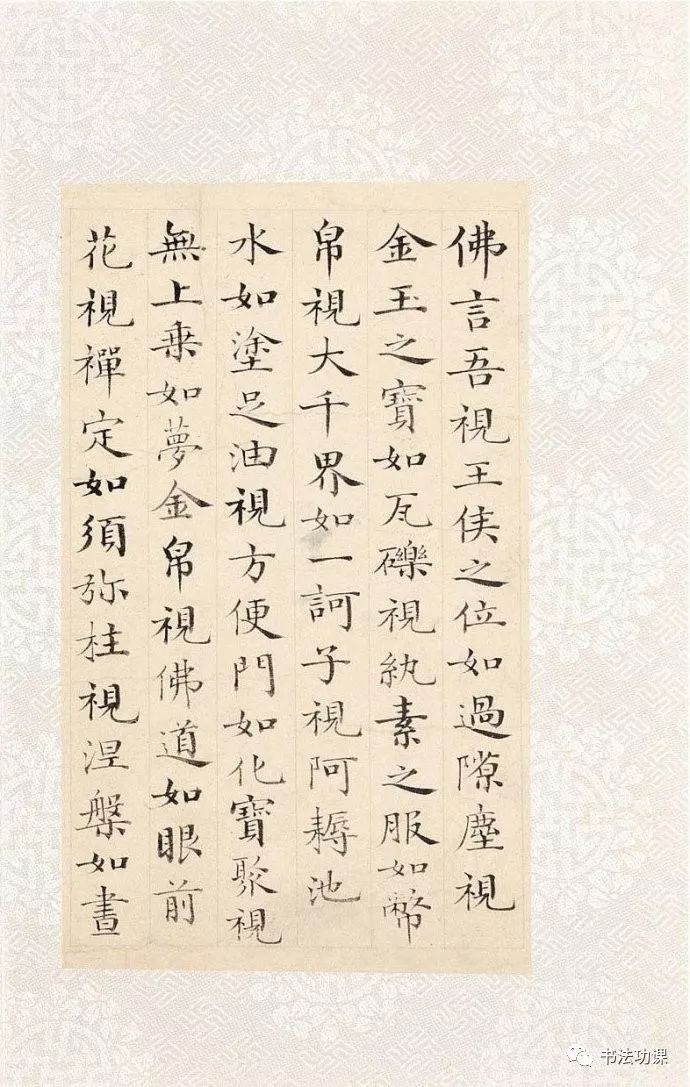 佛言吾視王侯之位如過隙塵視
金玉之寶如瓦礫視紈素之服如幣
帛視大千界如一訶子視阿耨池
水如塗足油視方便門如化寶聚視
無上乗如夢金帛視佛道如眼前
花視禪定如須弥柱視涅槃如晝
书法功课